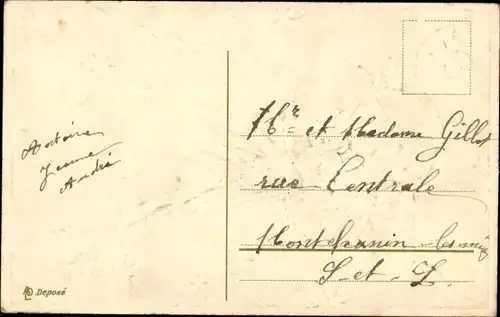 Antoine
Jeanne
André
Mr et Madame Gillot
rue Centrale
Montchanin-les-mines
S-et-L.
Deposé